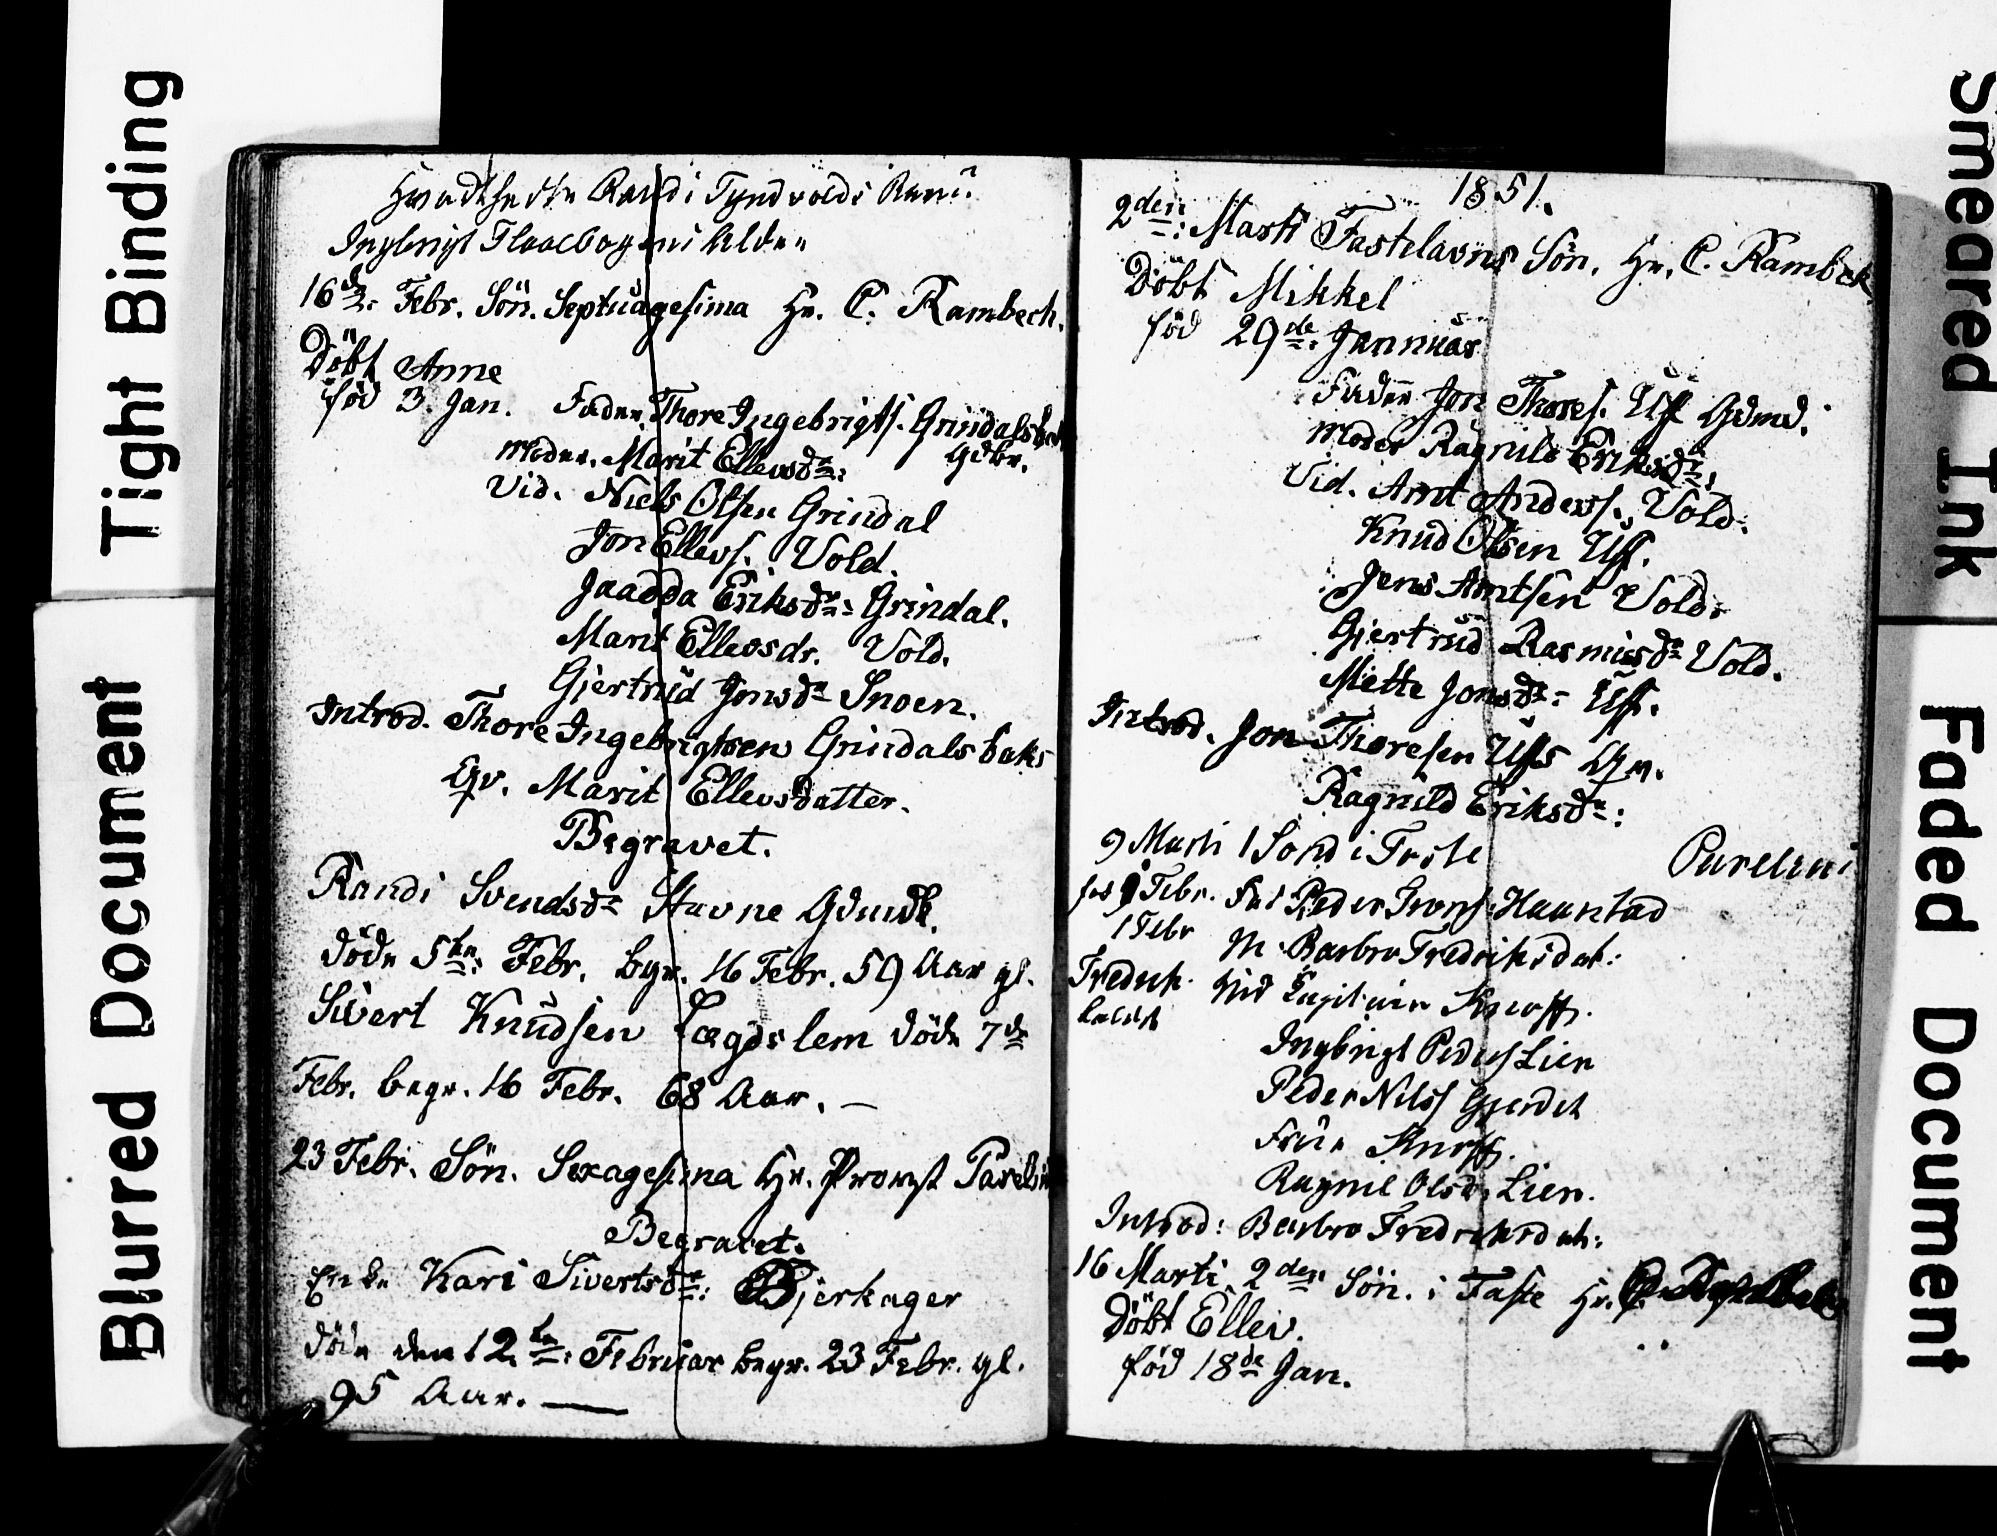 Tight Binding
Blurred Document
Randi Tyndvolds
16de Febr. Søn. Septuagesima Hr. C. Rambech.
Döbt Anne
föd 3. Jan. Fader Thore Ingebrigts. Grindalsbak
Gdbr.
Moder. Marit Ellevsdr:
Vid. Niels Olsen Grindal
Jon Ellevs. Vold.
Jaadda Eriksdr: Grindal.
Marit Ellevsdr. Vold.
Gjertrud Jonsdr Snoen.
Introd. Thore Ingebrigtsen Grindalsbaks
Qv. Marit Ellevsdatter.
Begravet.
Randi Svendsdr Stavne
döde 5te Febr. begr. 16 Febr. 59 Aar gl.
Sivert Knudsen Lægdslem döde 7de
Febr. begr. 16 Febr. 68 Aar. —
23 Febr. Søn. Sexagesima Hr. Provst Parelius
Begravet.
Enke Kari Sivertsdr: Bjerkager
döde den 12te Februar begr. 23 Febr. gl.
95 Aar. —
1851.
2den: Marti Fastelavns Søn. Hr. C. Rambek
Döbt Mikkel
föd 29de Jannuar
Fader Jon Thores. Uff Gdmd.
Moder Ragnild Eriksdr:
Vid. Arnt Anders. Vold.
Knud Olsen Uff.
Jens Arntsen Vold.
Gjertrud Rasmusdr Vold.
Mette Jonsdr: Uff.
Introd. Jon Thoresen Uffs Qv.
Ragnild Eriksdr:
9 Marti 1 Sönd i Faste Parelius
föd 9 Febr. Fad Peder Haanstad
1 Febr M. Barbro Fredriksdat:
Fredrik Vid Capitain Knoff.
kaldet
Ingbrigt Peders Lien
Peder Nilss Gjerdet
Frue Knoff.
Ragnil Olsd. Lien.
Introd: Barbro Fredriksdat:
16 Marti. 2den Søn. i Faste Hr. C.
Döbt Ellev.
föd 18de Jan.
Smeared Ink
Faded Document